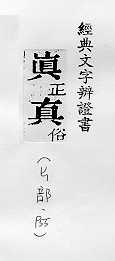 經典文字辨證書
眞正真俗
(匕部·